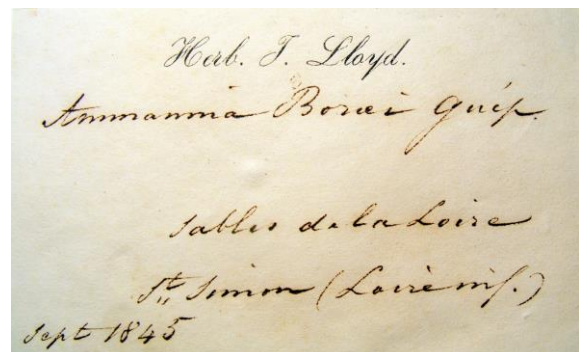 Herb. J. Lloyd.
Ammannia Boræi Guép.
Sables de la Loire
St. Simon (Loire inf.)
Sept 1845